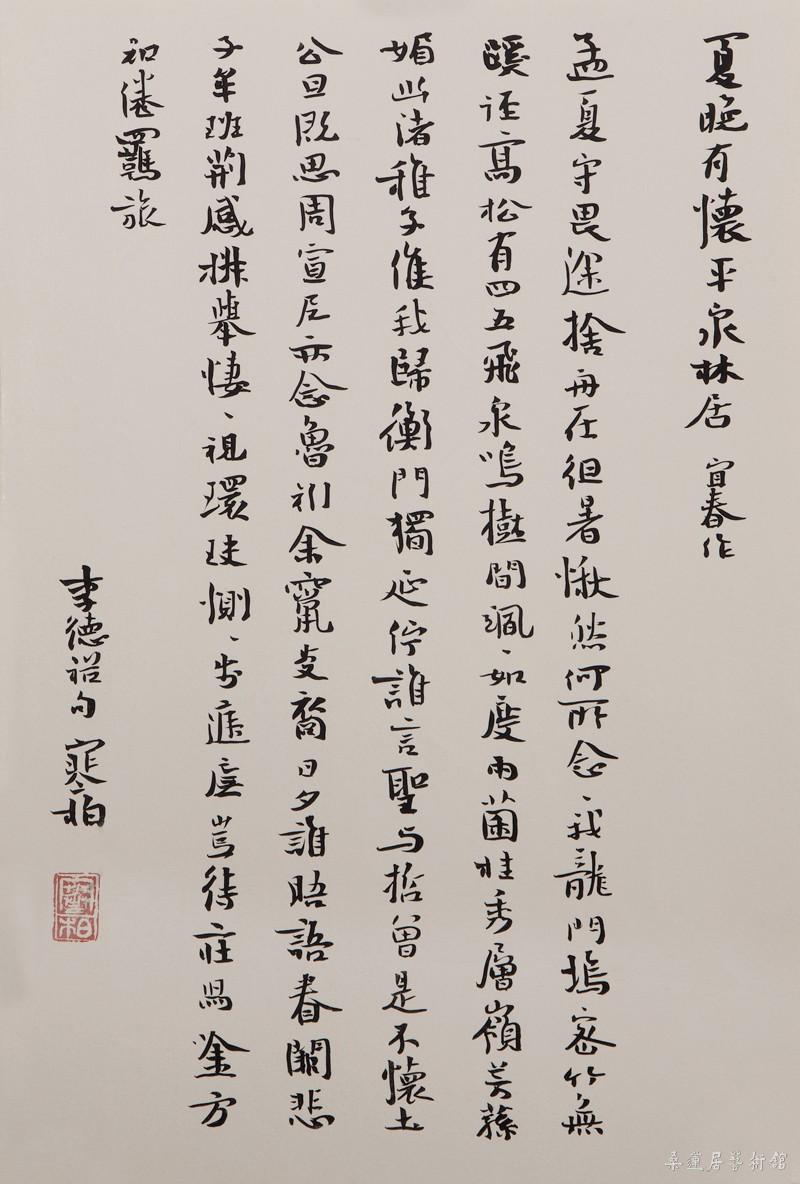 夏晚有懷平泉林居 宜春作
孟夏守畏途捨舟在徂暑愀然何所念、我龍門塢密竹無
蹊徑高松有四五飛泉鳴樹間颯、如度雨菌桂秀層嶺芳蓀
媚幽渚稚子候我歸衡門獨延佇誰言聖与哲曾是不懷土
公旦既思周宣尼亦念魯矧余竄炎裔日夕誰晤語眷闕悲
子牟班荊感椒舉悽、視環玦惻、步庭廡豈待莊舄吟方
知倦羈旅
李德裕句 寒柏
桑蓮居藝術館